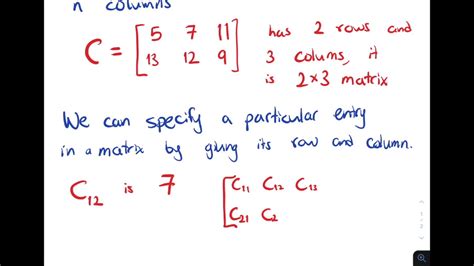 n columns
C = [ 5 7 11 has 2 rows and
13 12 9 ] 3 colums, it
is 2×3 matrix
We can specify a particular entry
in a matrix by giving its row and column.
C₁₂ is 7 [ C₁₁ C₁₂ C₁₃
C₂₁ C₂